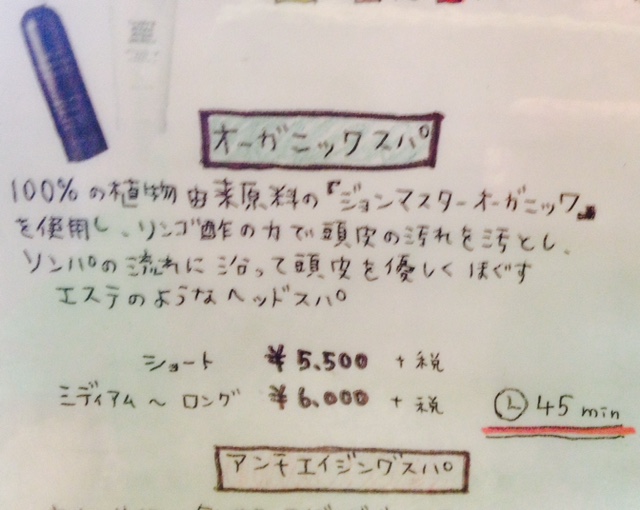 オーガニックスパ
100%の植物由来原料の『ジョンマスターオーガニック』
を使用し、リンゴ酢の力で頭皮の汚れを汚とし、
リンパの流れに沿って頭皮を優しくほぐす
エステのようなヘッドスパ
ショート ¥5.500 +税
ミディアム〜ロング ¥6.000 +税
45min
アンチエイジングスパ